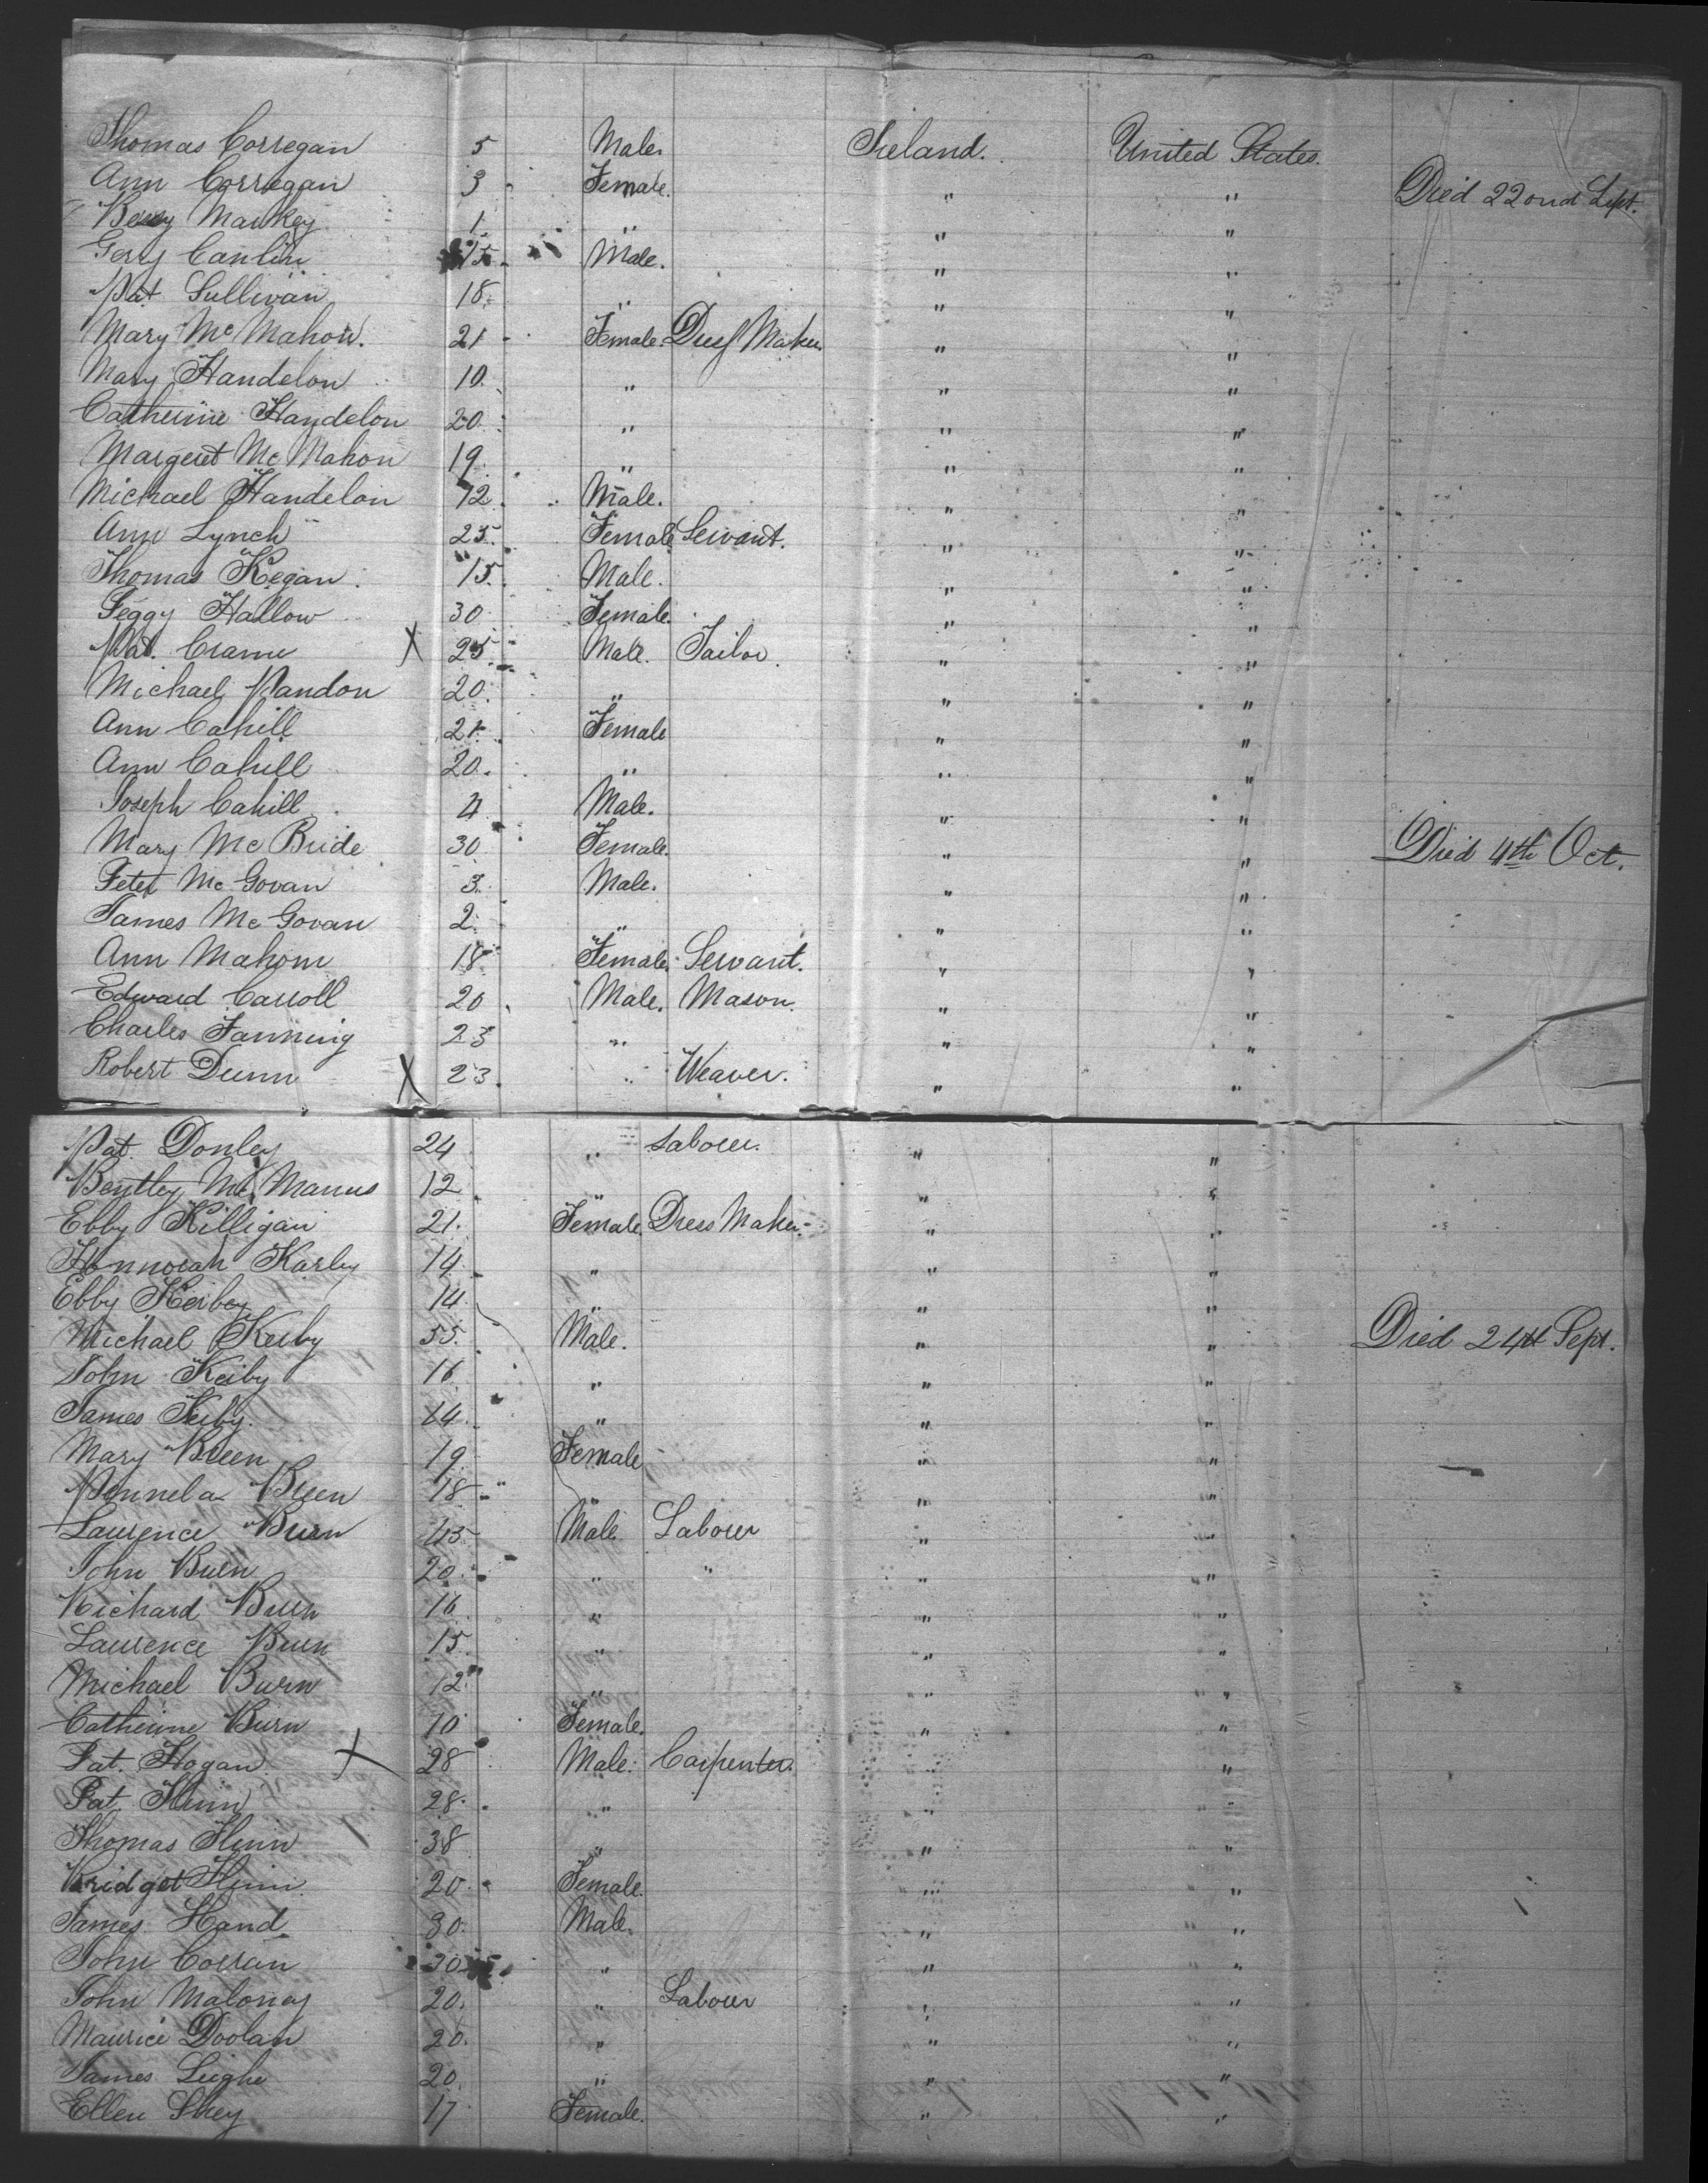 Thomas Corregan 5 Male. Ireland. United States.
Ann Corregan 3 Female. " " Died 22ond Sept.
Markey 1 " " "
Gerry Canlin 15 Male. " "
Pat Sullivan 18 " " "
Mary McMahon. 21 Female. Dress Maker. " "
Mary Handelon 10 " " "
Catherine Handelon 20 " " "
Margeret McMahon 19 " " "
Michael Handelon 12 Male. " "
Ann Lynch 25 Female Servant. " "
Thomas Kegan 15 Male. " "
Peggy Hallow 30 Female. " "
Pat. X 25 Male. Tailor. " "
Michael Pandon 20 " " "
Ann Cahill 21 Female " "
Ann Cahill 20. " " "
Joseph Cahill 4 Male. " "
Mary McBride 30 Female. " " Died 4th Oct.
Peter McGovan 3. Male. " "
James McGovan 2. " " "
Ann Mahom 18 Female. Servant. " "
Edward Carroll 20 Male. Mason. " "
Charles Fanning 23 " " "
Robert Dunn X 23. " Weaver. " "
Pat. Donley 24 " Labourer. " "
Bentley McManus 12 " " "
Ebby Killigan 21. Female. Dress Maker " "
Honnorah Karby 14 " " "
Ebby Keirbey 14 " " "
Michael Keirby 55. Male. " " Died 24th Sept.
John Keirby 16 " " "
James Keirby. 14 " " "
Mary Breen 19 Female " "
Pennela Breen 18 " " "
Laurence Burn 45 Male Labourer " "
John Buen 20. " " " "
Richard Buen 16 " " "
Laurence Buen 15 " " "
Michael Burn 12 " " "
Catherine Burn 10 Female. " "
Pat. Hogan X 28 Male. Carpenter. " "
Pat. Flinn 28 " " "
Thomas Flinn 38 " " "
Bridget Flinn 20 Female. " "
James Hand 30 Male. " "
John Corran 20 " " "
John Maloney 20. " Labourer " "
Maurice Doolan 20. " " "
James Leighe 20. " " "
Ellen Shey 17 Female. " "